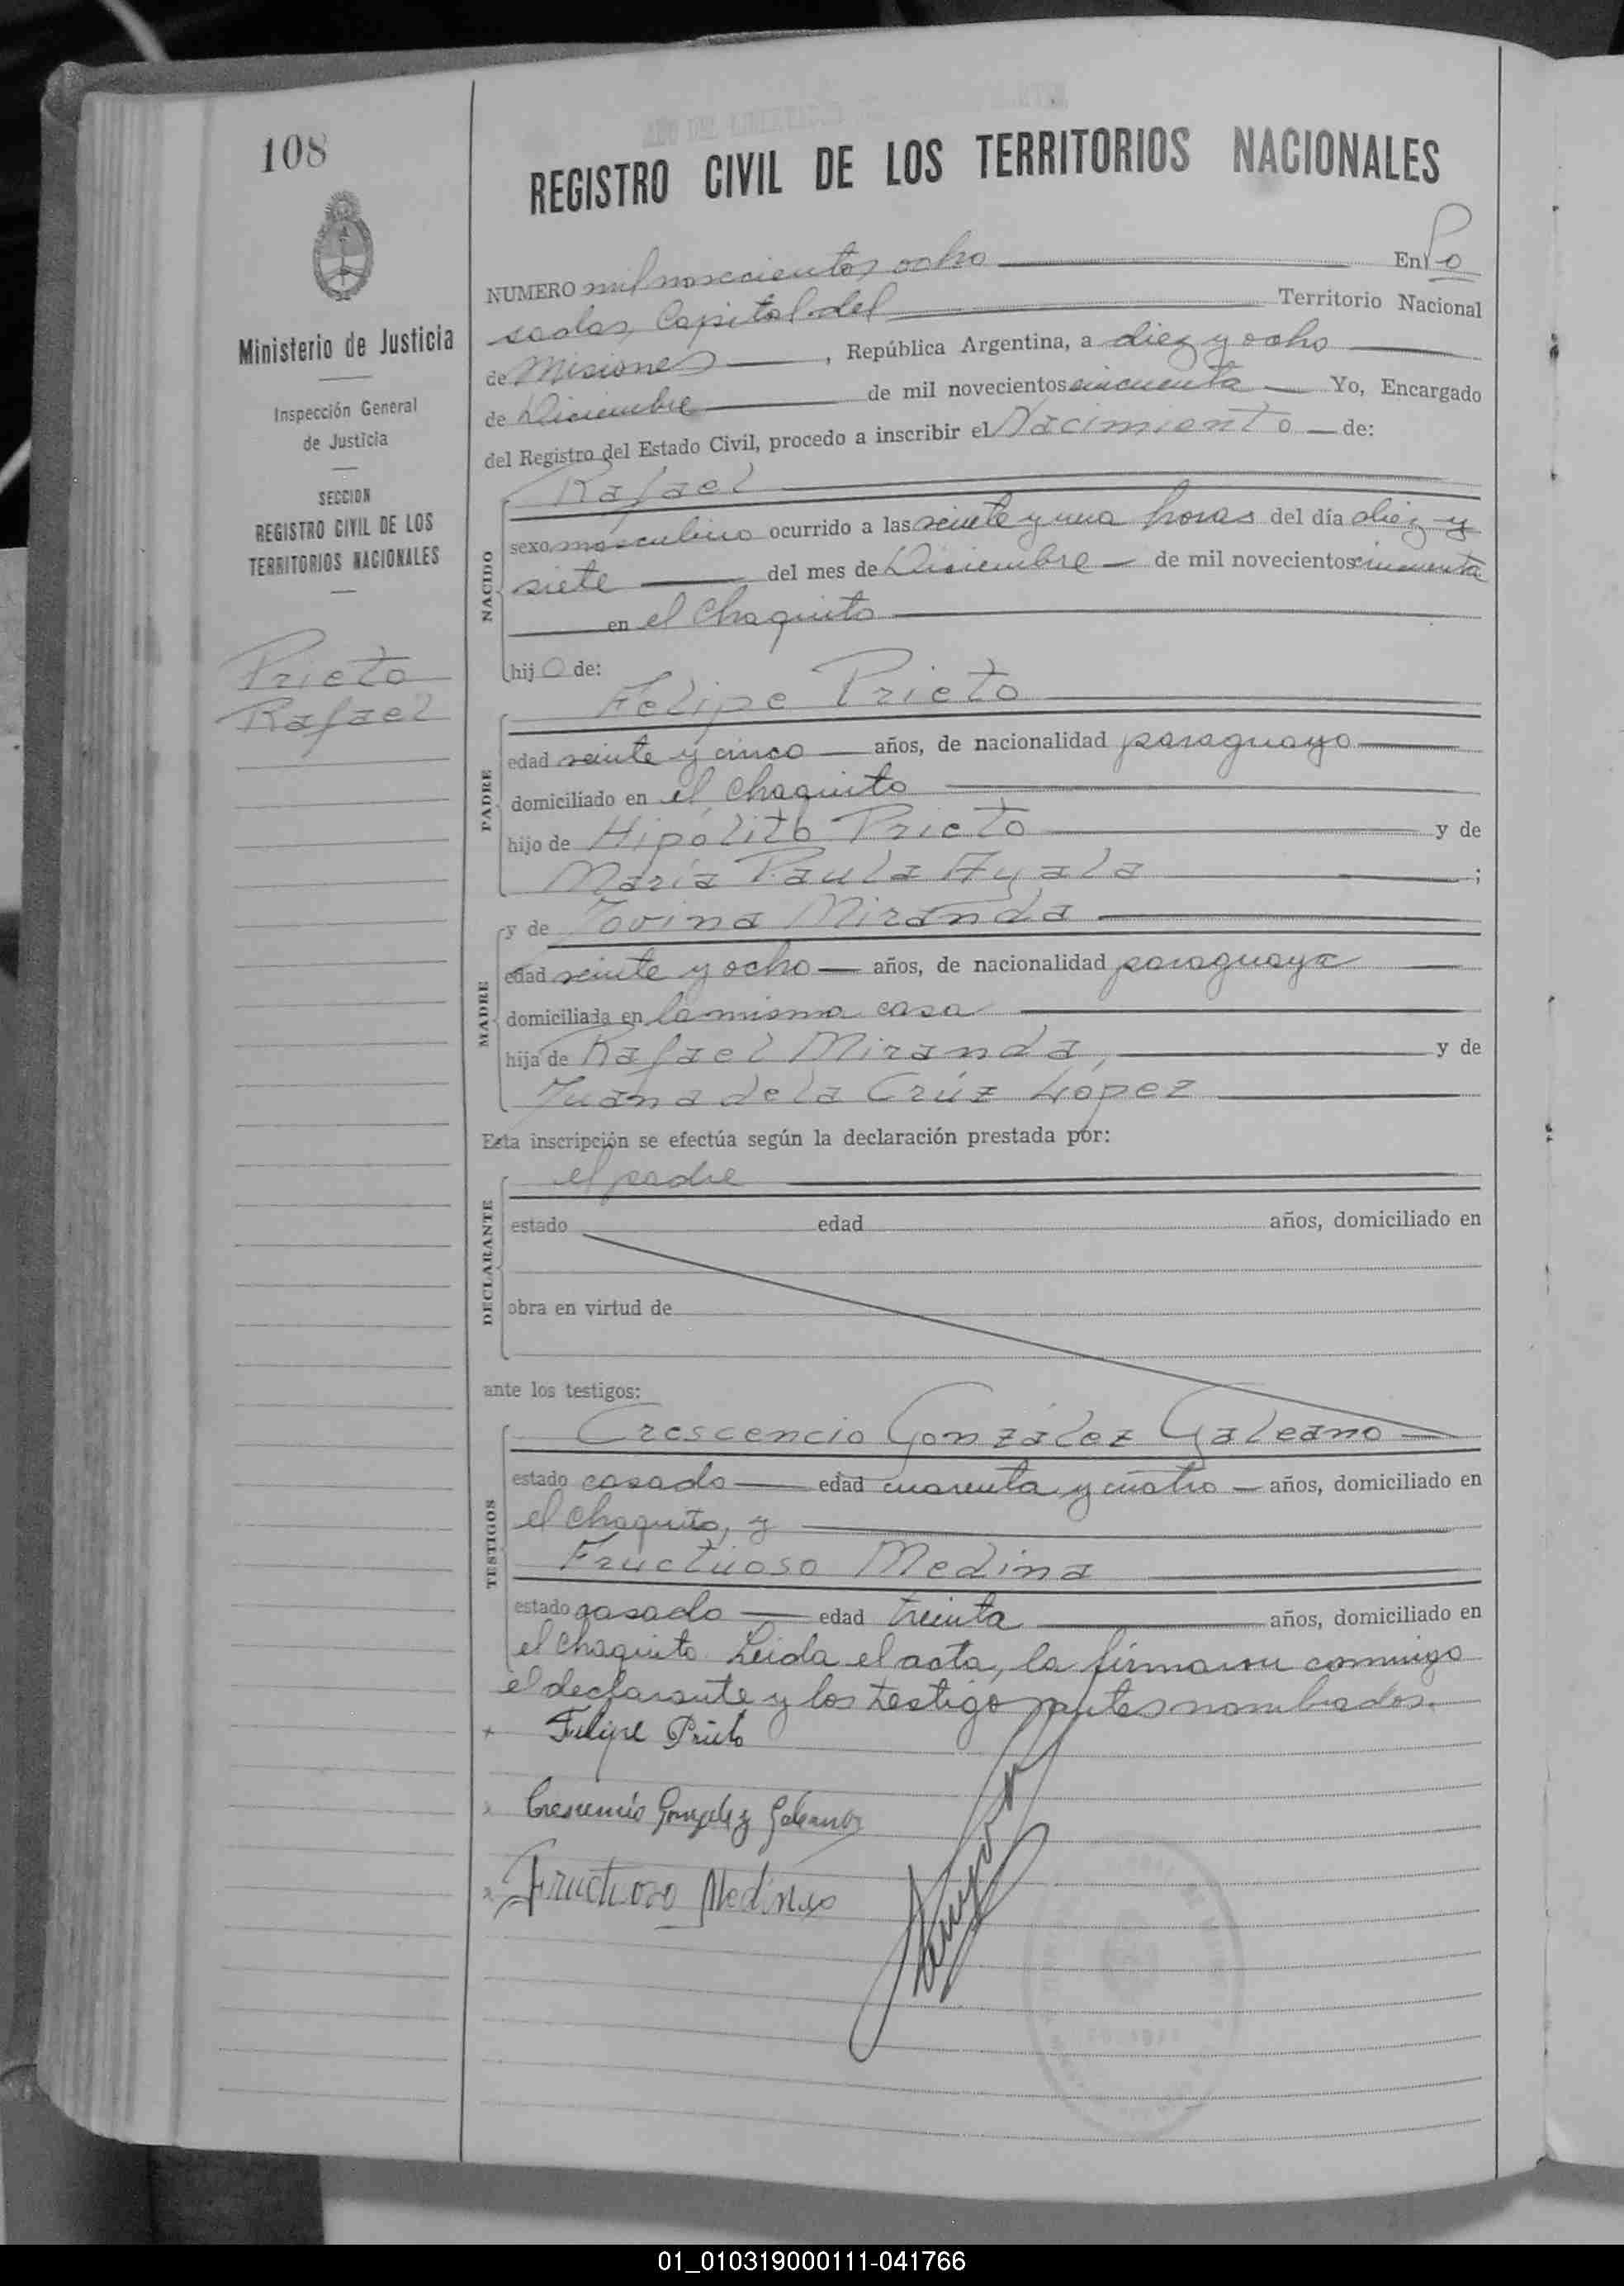 108
Ministerio de Justicia
Inspección General
de Justicia
SECCION
REGISTRO CIVIL DE LOS
TERRITORIOS NACIONALES
Prieto
Rafael
REGISTRO CIVIL DE LOS TERRITORIOS NACIONALES
NUMERO mil novecientos ocho En Po
sadas, Capital del Territorio Nacional
de Misiones, República Argentina, a diez y ocho
de Diciembre de mil novecientos cincuenta Yo, Encargado
del Registro del Estado Civil, procedo a inscribir el Nacimiento de:
Rafael
NACIDO
sexo masculino ocurrido a las veinte y una horas del día diez y
siete del mes de Diciembre de mil novecientos cincuenta
en el Chaquito
hijo de:
Felipe Prieto
PADRE
edad veinte y cinco años, de nacionalidad paraguayo
domiciliado en el Chaquito
hijo de Hipólito Prieto y de
María Paula Ayala ;
MADRE
y de Jovina Miranda
edad veinte y ocho años, de nacionalidad paraguaya
domiciliada en la misma casa
hija de Rafael Miranda, y de
Juana de la Crúz López
Esta inscripción se efectúa según la declaración prestada por:
el padre
DECLARANTE
estado edad años, domiciliado en
obra en virtud de
ante los testigos:
Crescencio González Galeano
TESTIGOS
estado casado edad cuarenta y cuatro años, domiciliado en
el Chaquito, y
Fructuoso Medina
estado casado edad treinta años, domiciliado en
el Chaquito. Leida el acta, la firmaron conmigo
el declarante y los testigos antes nombrados.
Felipe Prieto
Crescencio Gonzalez Galeano
Fructuoso Medina
01_010319000111-041766